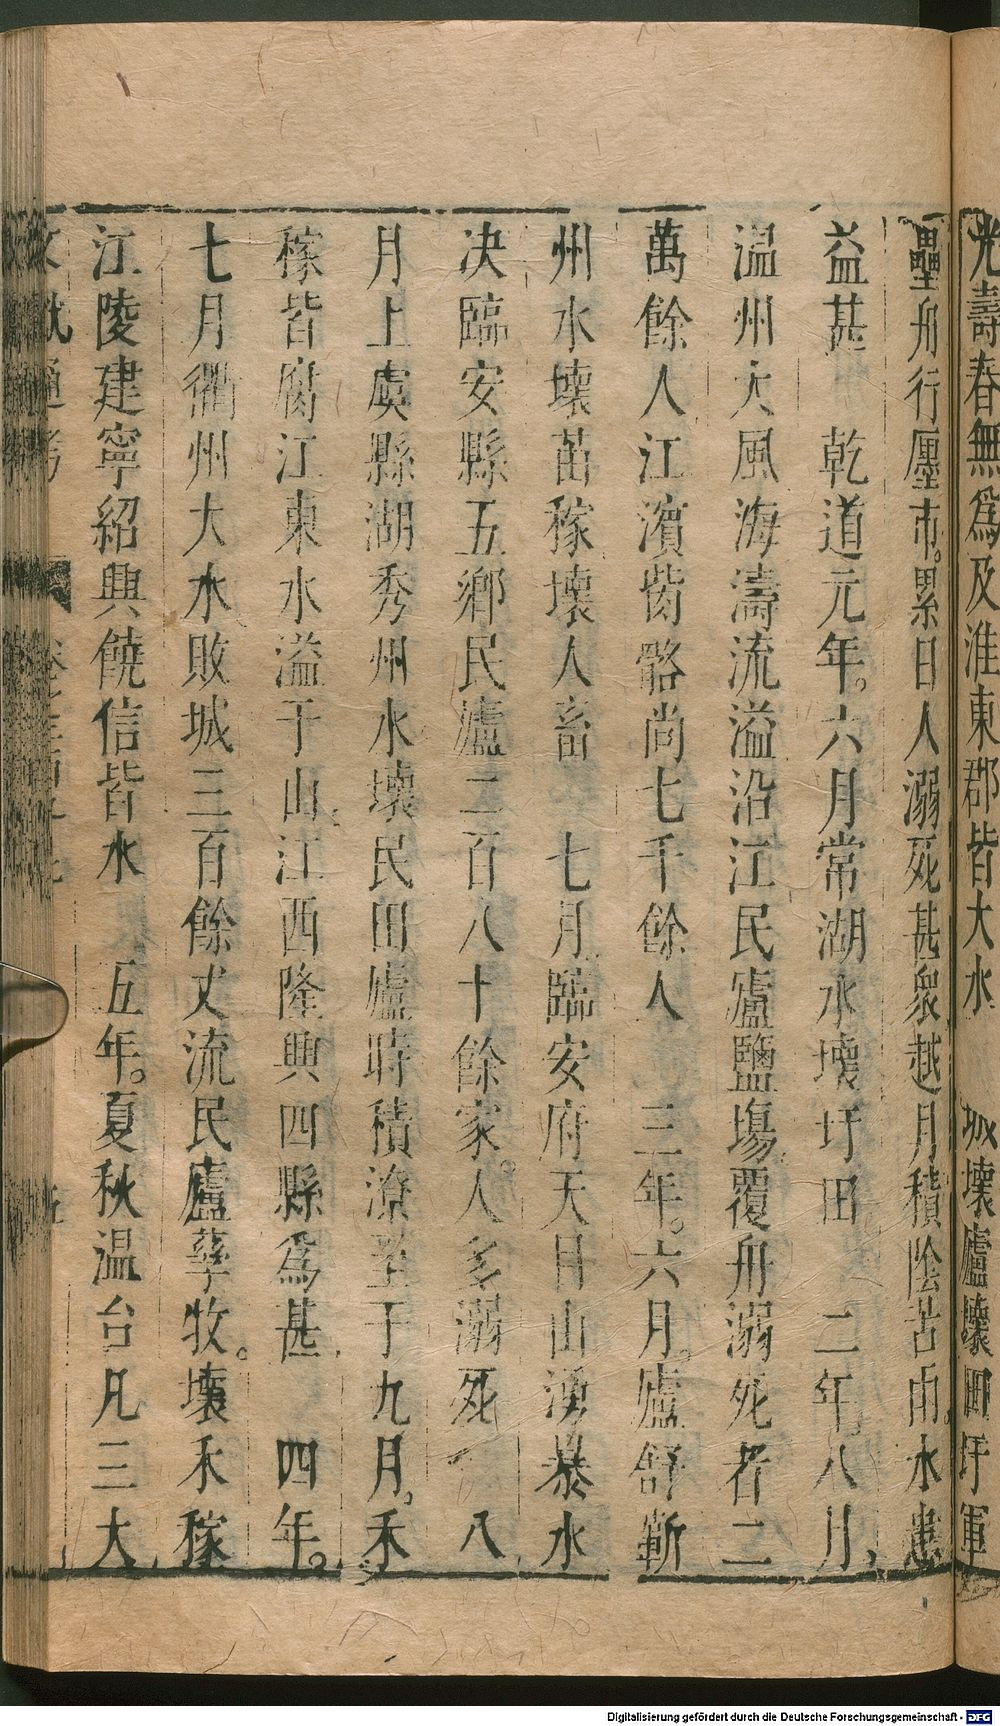 光壽春無爲及淮東郡皆大水　城壞廬壞田圩軍
壘舟行廛市累日人溺死甚衆越月積陰苦雨水患
益甚　乾道元年六月常湖水壞圩田　二年八月
温州大風海濤流溢沿江民廬鹽塲覆舟溺死者二
萬餘人江濱胔骼尚七千餘人　三年六月廬舒蘄
州水壞苗稼壞人畜　七月臨安府天目山湧暴水
决臨安縣五鄉民廬二百八十餘家人多溺死　八
月上虞縣湖秀州水壞民田廬時積潦至于九月禾
稼皆腐江東水溢于山江西隆興四縣爲甚　四年
七月衢州大水敗城三百餘丈流民廬孳牧壞禾稼
江陵建寧紹興饒信皆水　五年夏秋温台凡三大
文獻通考
Digitalisierung gefördert durch die Deutsche Forschungsgemeinschaft - DFG